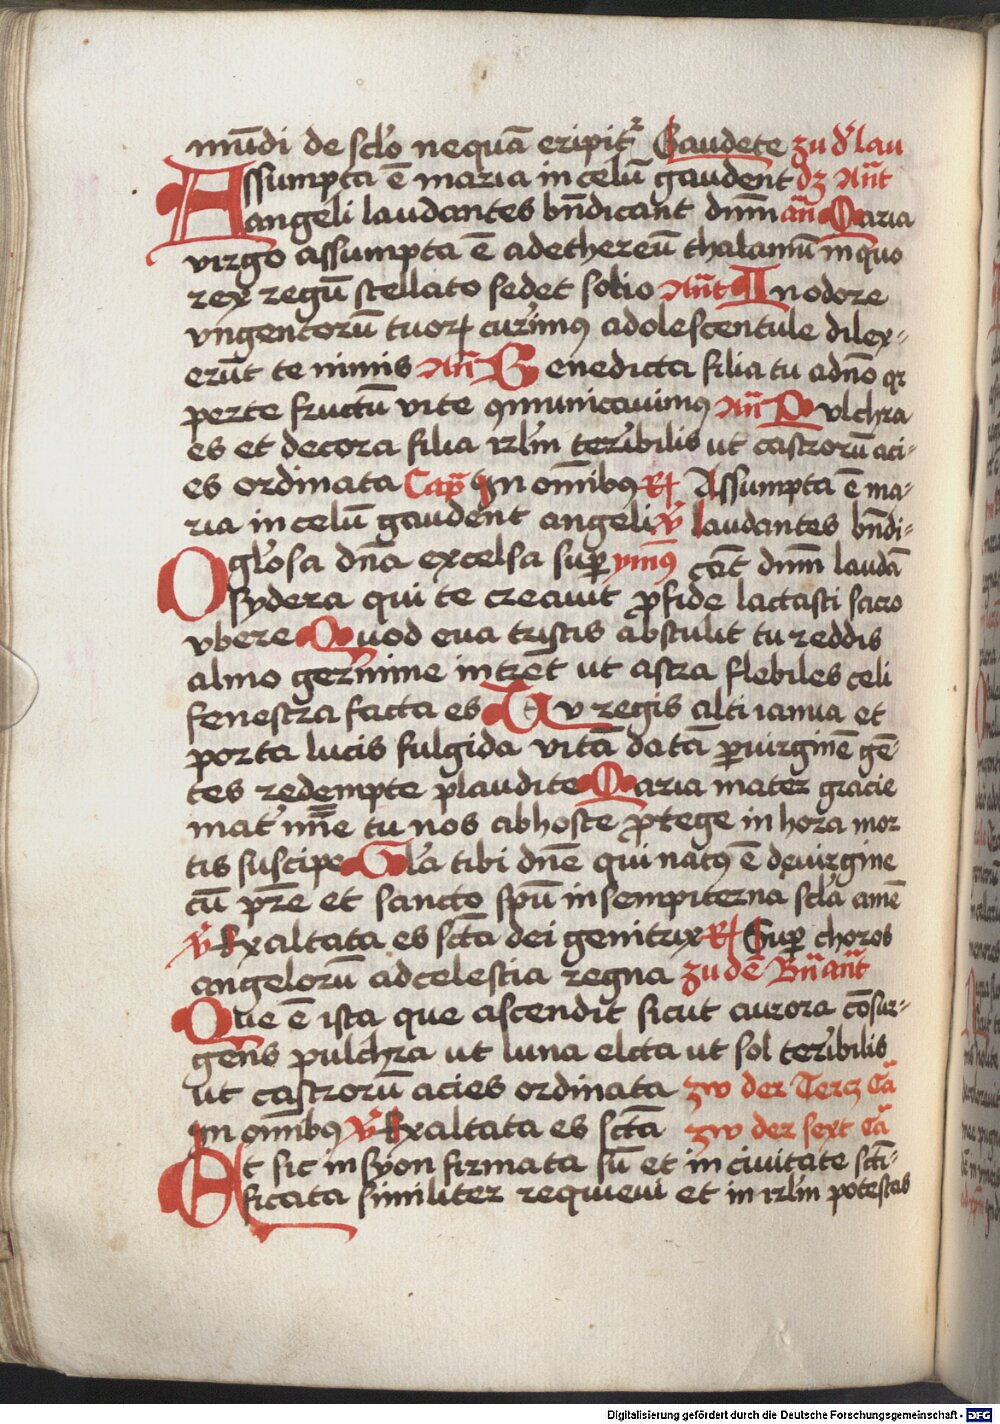 mūdi de sclo nequā eripit᷑ Gaudete zu d' lau
Assumpta ē maria in celū gaudent dz Ant
angeli laudantes bn̄dicant dnm̄ an̄ Maria
virgo assumpta ē ad ethereū thalamū in quo
rex regū stellato sedet solio Ant In odore
vngentorū tuoꝝ curimꝰ adolescentule dilex-
erūt te nimis An̄ Benedicta filia tu a dn̄o qr
per te fructū vite ꝯmunicauimꝰ An̄ Pulchra
es et decora filia irlm̄ teribilis ut castrorū aci-
es ordinata Cap̄ In omībꝰ R Assumpta ē ma-
ria in celū gaudent angeli v̄ laudantes bn̄di-
O gl'osa dn̄a excelsa suꝑ ymnꝰ cāt dnm̄ laudā
sydera qui te creauit ꝓfide lactasti sacro
vbere Quod eua tristis abstulit tu reddis
almo germine intrēt ut astra flebiles celi
fenestra facta es Tu regis alti ianua et
porta lucis fulgida vitā datā ꝑ virginē gē-
tes redempte plaudite Maria mater gracie
mat' mīe tu nos ab hoste ꝓtege in hora mor
tis suscipe Gl'a tibi dn̄e qui natꝰ ē de virgine
cū pr̄e et sancto spū in sempiterna scl'a amē
v̄ Exaltata es sctā dei genitrix R Suꝑ choros
angelorū ad celestia regna zu dē Bn̄ ant
Que ē ista que ascendit sicut aurora cōsur-
gens pulchra ut luna elcta ut sol teribilis
ut castrorū acies ordinata zw der Tercz Cā
In omībꝰ v̄ Exaltata es sctā zw der sext Cā
Et sic in syon firmata sū et in ciuitate scti-
ficata similiter requieui et in irlm̄ potestas
Digitalisierung gefördert durch die Deutsche Forschungsgemeinschaft - DFG